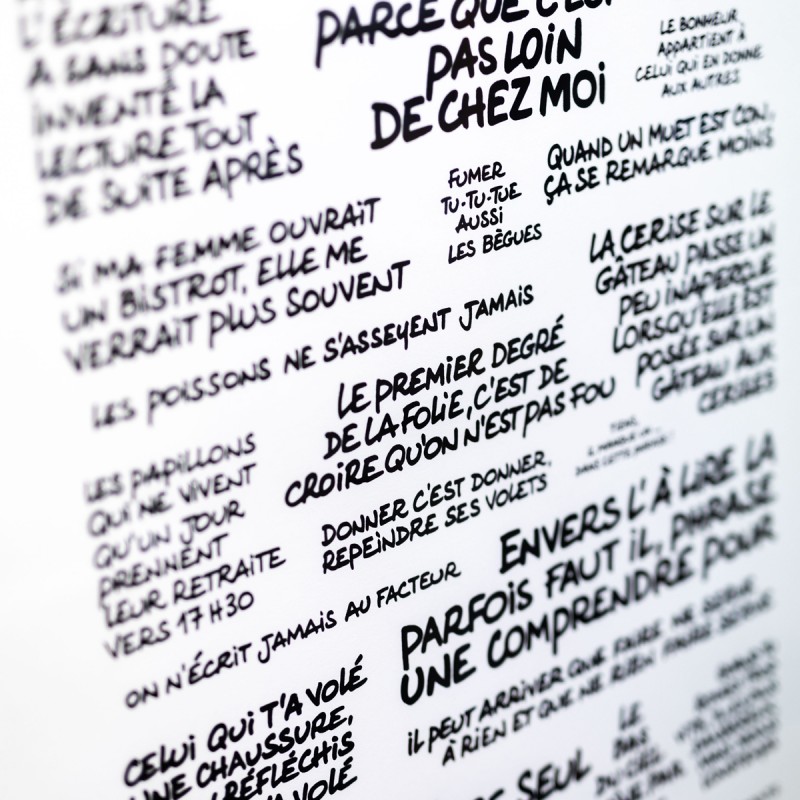 L'ÉCRITURE
A SANS DOUTE
INVENTÉ LA
LECTURE TOUT
DE SUITE APRÈS
PARCE QUE C'EST
PAS LOIN
DE CHEZ MOI
LE BONHEUR
APPARTIENT À
CELUI QUI EN DONNE
AUX AUTRES
FUMER
TU-TU-TUE
AUSSI
LES BÈGUES
QUAND UN MUET EST CON,
ÇA SE REMARQUE MOINS
SI MA FEMME OUVRAIT
UN BISTROT, ELLE ME
VERRAIT PLUS SOUVENT
LA CERISE SUR LE
GÂTEAU PASSE UN
PEU INAPERÇUE
LORSQU'ELLE EST
POSÉE SUR UN
GÂTEAU AUX
CERISES
LES POISSONS NE S'ASSEYENT JAMAIS
LE PREMIER DEGRÉ
DE LA FOLIE, C'EST DE
CROIRE QU'ON N'EST PAS FOU
LES PAPILLONS
QUI NE VIVENT
QU'UN JOUR
PRENNENT
LEUR RETRAITE
VERS 17H30
DONNER C'EST DONNER,
REPEINDRE SES VOLETS
ENVERS L'À LIRE LA
PARFOIS FAUT IL, PHRASE
UNE COMPRENDRE POUR
ON N'ÉCRIT JAMAIS AU FACTEUR
IL PEUT ARRIVER QUE FAIRE NE SERVE
À RIEN ET QUE NE RIEN FAIRE SERVE
CELUI QUI T'A VOLÉ
UNE CHAUSSURE,
RÉFLÉCHIS
T'A VOLÉ
SEUL
LE
BAS
DU CIEL